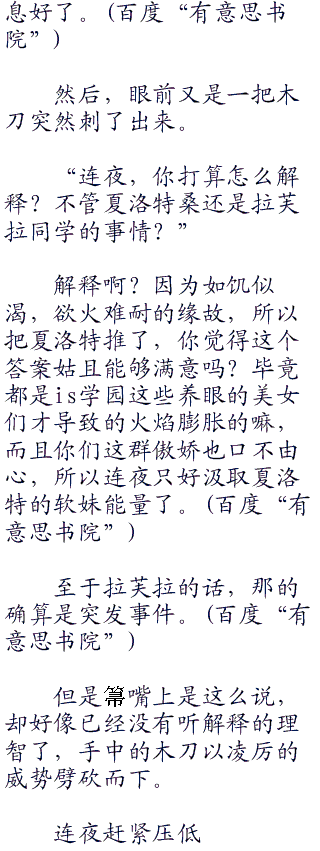 息好了。(百度“有意思书
院”)
然后，眼前又是一把木
刀突然刺了出来。
“连夜，你打算怎么解
释？不管夏洛特桑还是拉芙
拉同学的事情？”
解释啊？因为如饥似
渴，欲火难耐的缘故，所以
把夏洛特推了，你觉得这个
答案姑且能够满意吗？毕竟
都是is学园这些养眼的美女
们才导致的火焰膨胀的嘛，
而且你们这群傲娇也口不由
心，所以连夜只好汲取夏洛
特的软妹能量了。(百度“有
意思书院”)
至于拉芙拉的话，那的
确算是突发事件。(百度“有
意思书院”)
但是箒嘴上是这么说，
却好像已经没有听解释的理
智了，手中的木刀以凌厉的
威势劈砍而下。
连夜赶紧压低